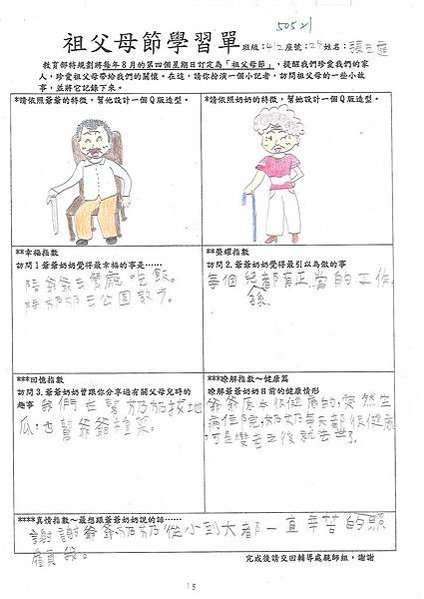 50521
祖父母節學習單 班級:412座號:24姓名:張
教育部特規劃將每年8月的第四個星期日訂定為「祖父母節」,提醒我們珍愛我們的家
人,珍愛祖父母帶給我們的關懷。在這,請你扮演一個小記者,訪問祖父母的一些小故
事,並將它記錄下來。
*請依照爺爺的特徵,幫他設計一個Q版造型。
*請依照奶奶的特徵,幫她設計一個Q版造型。
**幸福指數
訪問1爺爺奶奶覺得最幸福的事是……
陪爺爺去餐廳吃飯。
陪奶奶去公園散步。
**榮耀指數
訪問2.爺爺奶奶覺得最引以為傲的事
每個兒都有正當的工作
孫
***回憶指數
訪問3.爺爺奶奶曾跟你分享過有關父母兒時的
趣事 我們在幫奶奶拔地
瓜,也幫爺爺種菜。
***瞭解指數~健康篇
瞭解爺爺奶奶目前的健康情形
爺爺原本很健康的,突然生
病住院,奶奶每天都很健康
可是變老之後就去世了。
****真情指數~最想跟爺爺奶奶說的話……
謝謝爺爺奶奶從小到大都一直辛苦的照
顧我。
完成後請交回輔導處屍師組,謝謝
15